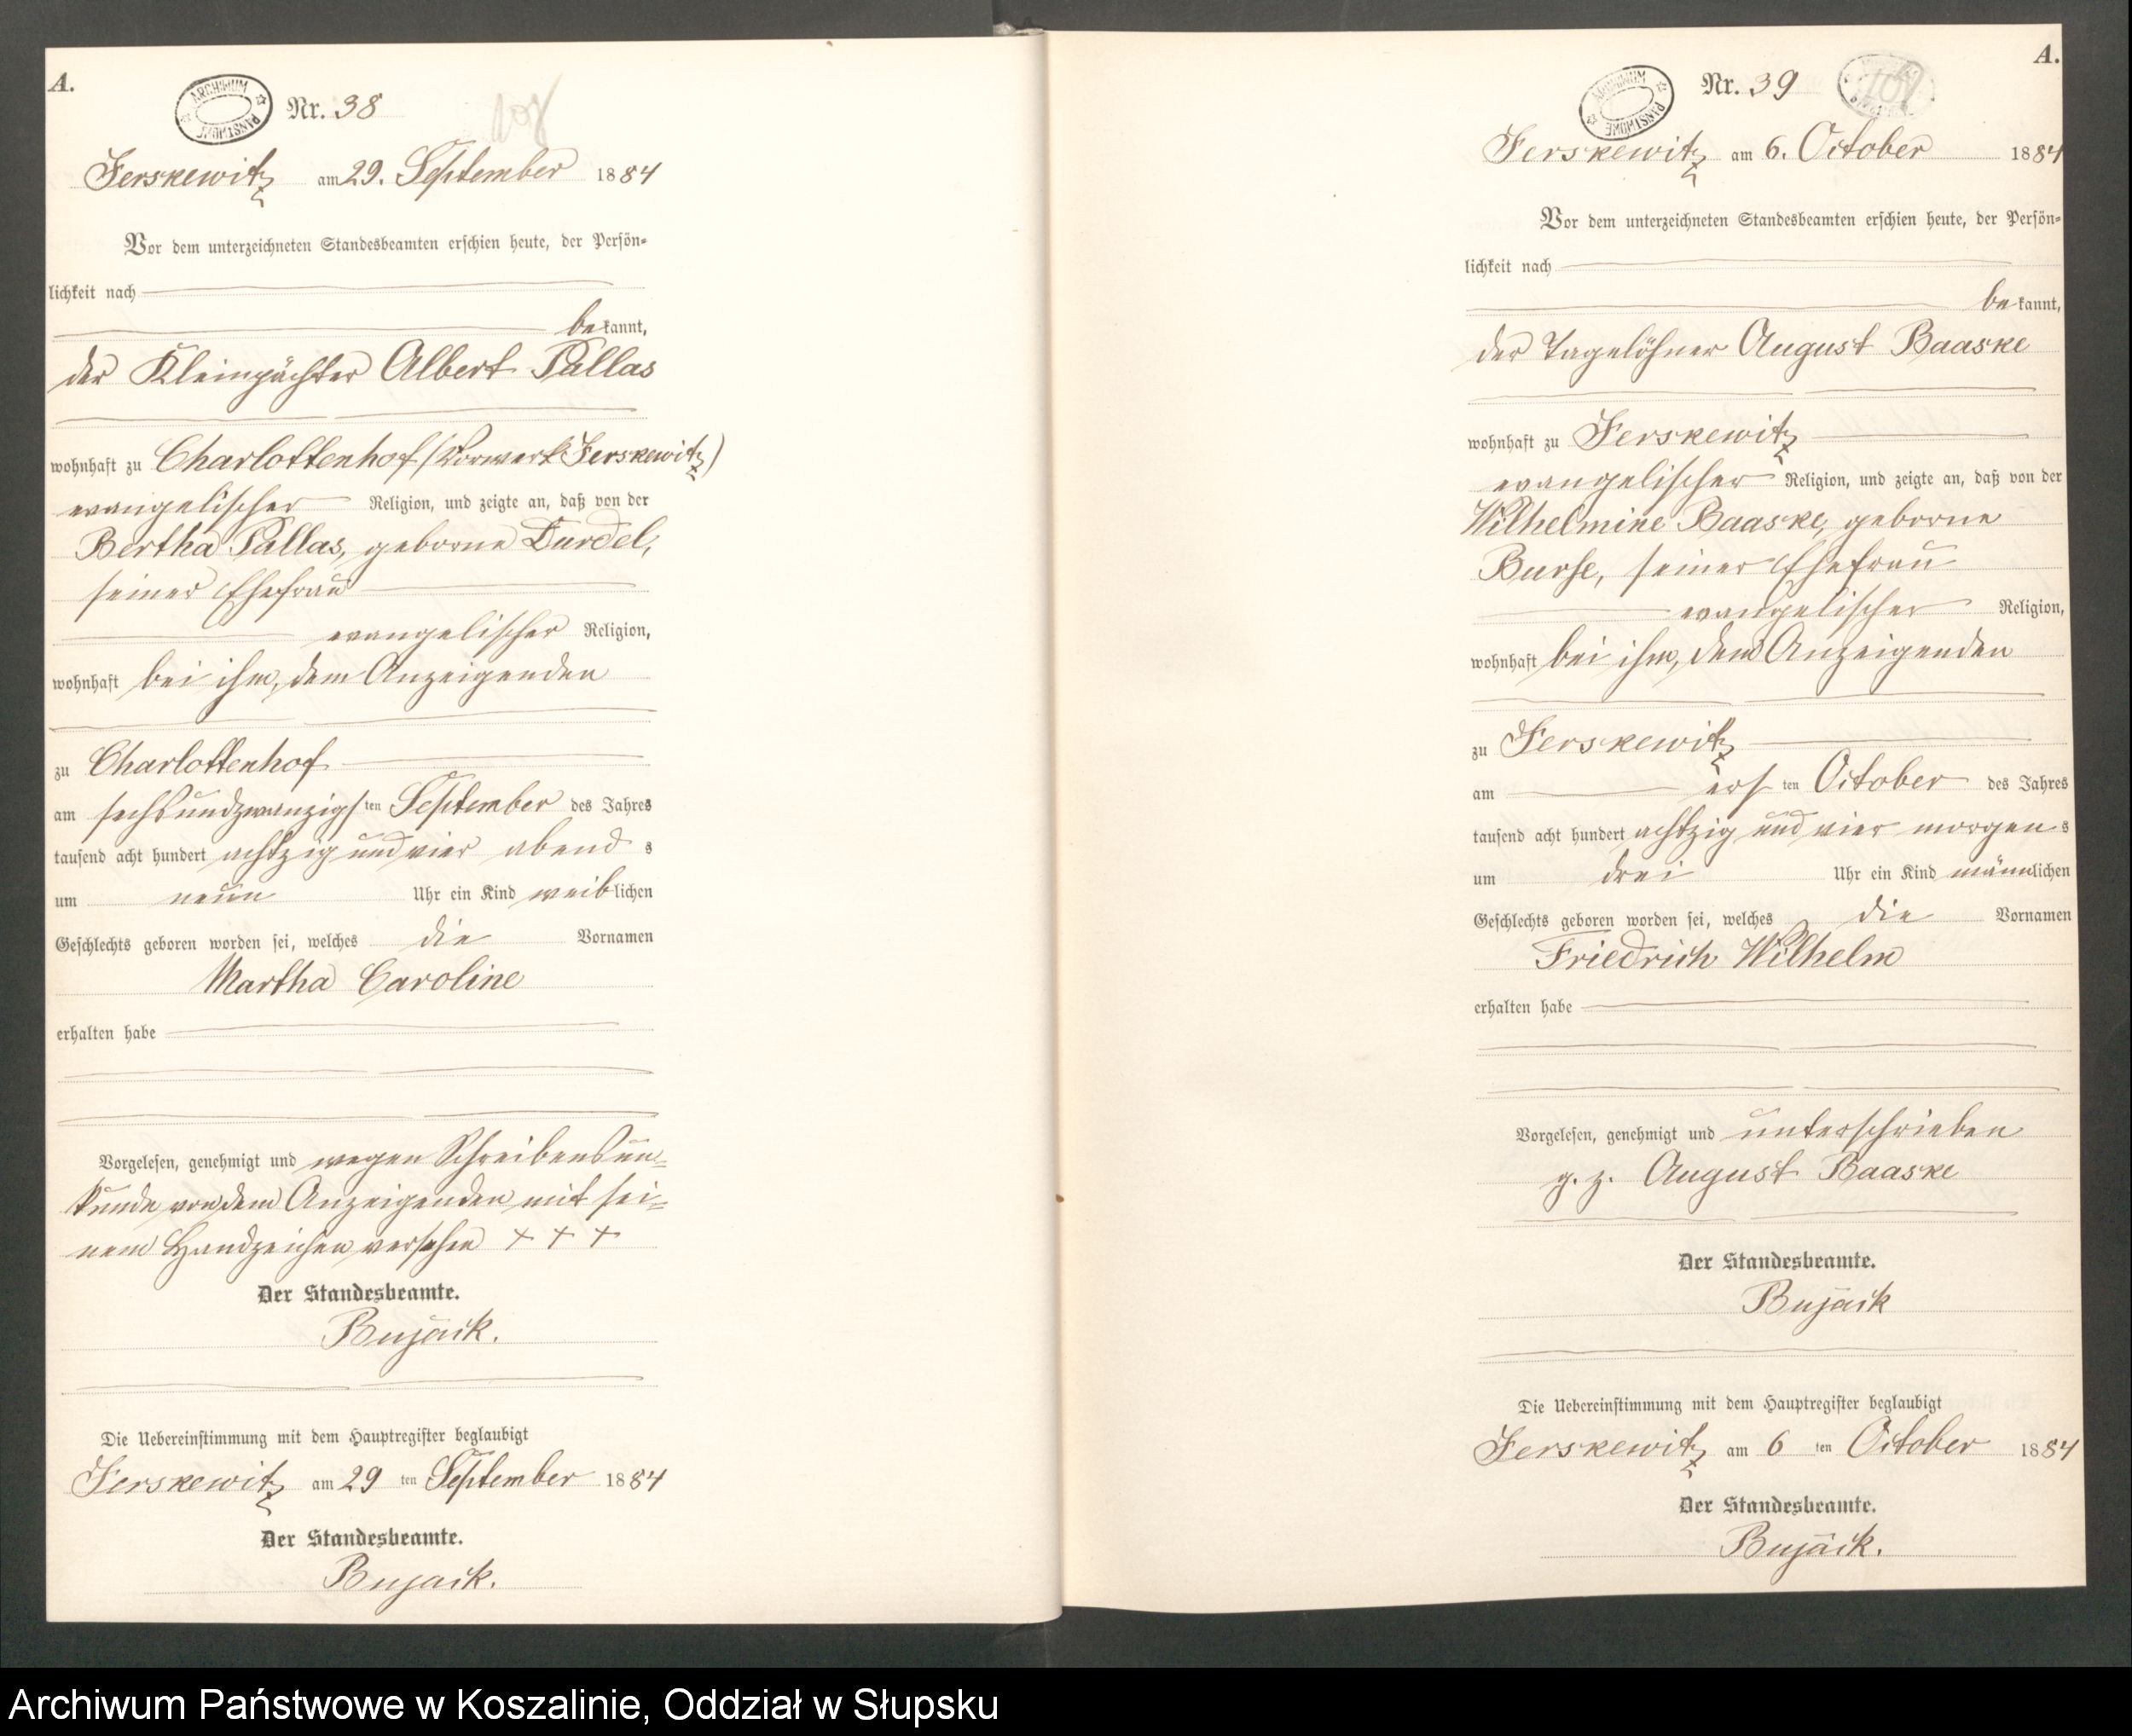 A.
ARCHIWUM PAŃSTWOWE
Nr. 38
108
Jerskewitz am 29. September 1884
Vor dem unterzeichneten Standesbeamten erschien heute, der Persön-
lichkeit nach
bekannt,
der Kleinpächter Albert Pallas
wohnhaft zu Charlottenhof (Vorwerk Jerskewitz)
evangelischer Religion, und zeigte an, daß von der
Bertha Pallas, geborne Durdel,
seiner Ehefrau
evangelischer Religion,
wohnhaft bei ihm, dem Anzeigenden
zu Charlottenhof
am sechsundzwanzigsten September des Jahres
tausend acht hundert achtzig und vier abends
um neun Uhr ein Kind weiblichen
Geschlechts geboren worden sei, welches die Vornamen
Martha Caroline
erhalten habe
Vorgelesen, genehmigt und wegen Schreibensun-
kunde von dem Anzeigenden mit sei-
nem Handzeichen versehen + + +
Der Standesbeamte.
Bujack.
Die Uebereinstimmung mit dem Hauptregister beglaubigt
Jerskewitz am 29 ten September 1884
Der Standesbeamte.
Bujack.
A.
ARCHIWUM PAŃSTWOWE
Nr. 39
109
Jerskewitz am 6. October 1884
Vor dem unterzeichneten Standesbeamten erschien heute, der Persön-
lichkeit nach
bekannt,
der Tagelöhner August Baaske
wohnhaft zu Jerskewitz
evangelischer Religion, und zeigte an, daß von der
Wilhelmine Baaske, geborne
Burse, seiner Ehefrau
evangelischer Religion,
wohnhaft bei ihm, dem Anzeigenden
zu Jerskewitz
am ersten October des Jahres
tausend acht hundert achtzig und vier morgens
um drei Uhr ein Kind männlichen
Geschlechts geboren worden sei, welches die Vornamen
Friedrich Wilhelm
erhalten habe
Vorgelesen, genehmigt und unterschrieben
g. z. August Baaske
Der Standesbeamte.
Bujack
Die Uebereinstimmung mit dem Hauptregister beglaubigt
Jerskewitz am 6 ten October 1884
Der Standesbeamte.
Bujack.
Archiwum Państwowe w Koszalinie, Oddział w Słupsku